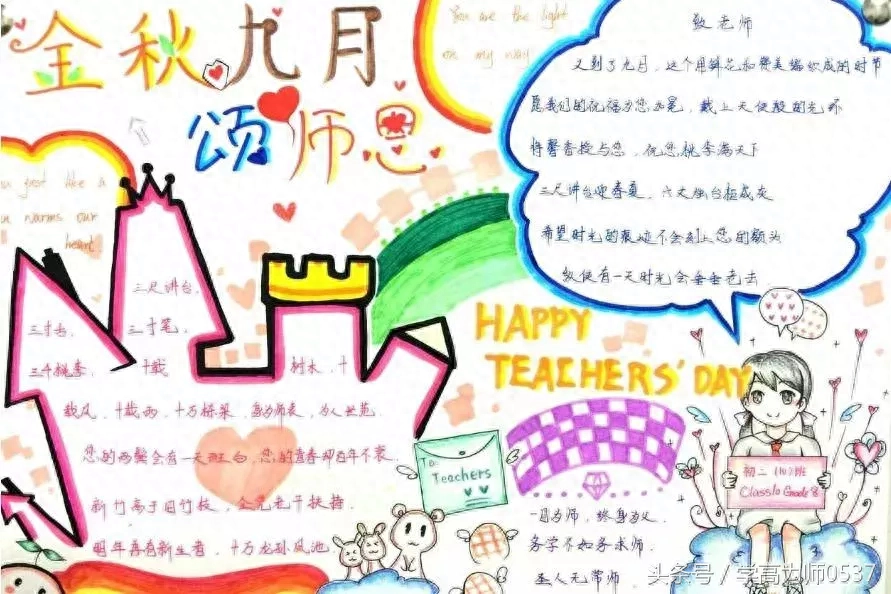 金秋九月
颂师恩
You are the light
on my way
just like a
warms our
heart
敬老师
又到了九月，这个用鲜花和赞美编织成的时节
愿我们的祝福为您加冕，戴上天使般的光环
将馨香授与您，祝您桃李满天下
三尺讲台迎春夏，六丈烛台
希望时光的痕迹不会刻上您的额头
纵使有一天时光会垂垂老去
三尺讲台，
三寸舌，三寸笔，
三千桃李，十载树木，十
载风，十载雨，十万栋梁
您的两鬓会有一天斑白，您的青春却百年不衰
新竹高于旧竹枝，全凭老干扶持
明年再有新生者，十万龙孙凤池
HAPPY
TEACHERS' DAY
To:
Teachers
初二（10）班
Class10 Grade 8
一日为师，终身为父
务学不如务求师
圣人无常师
头条号／学高为师0537